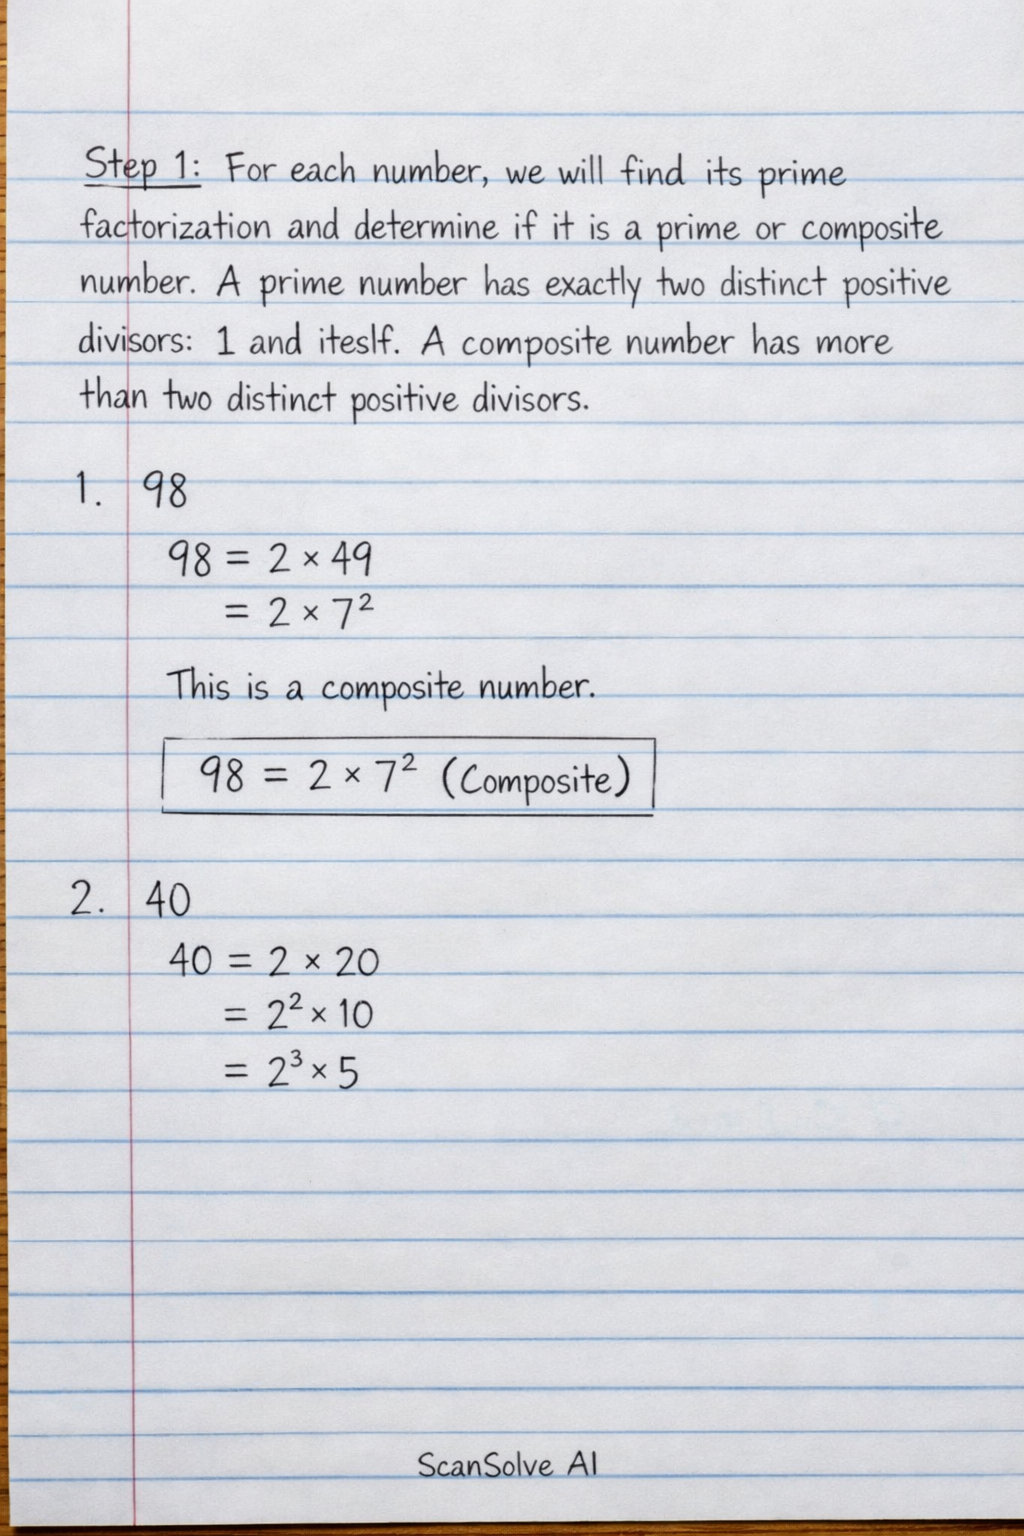 Step 1: For each number, we will find its prime
factorization and determine if it is a prime or composite
number. A prime number has exactly two distinct positive
divisors: 1 and iteslf. A composite number has more
than two distinct positive divisors.
1. 98
98 = 2 × 49
= 2 × 7²
This is a composite number.
98 = 2 × 7² (Composite)
2. 40
40 = 2 × 20
= 2² × 10
= 2³ × 5
ScanSolve AI